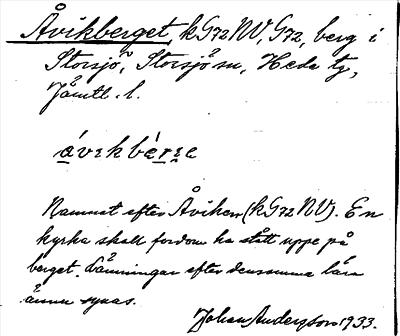 Åvikberget, kG72NV, G72, berg i
Storsjö, Storsjö sn, Hede tg,
Jämtl. l.
ávıkbèrı̯e
Namnet efter Åviken (kG72NV). En
kyrka skall fordom ha stått uppe på
berget. Lämningar efter densamma lära
ännu synas.
Johan Andersson 1933.